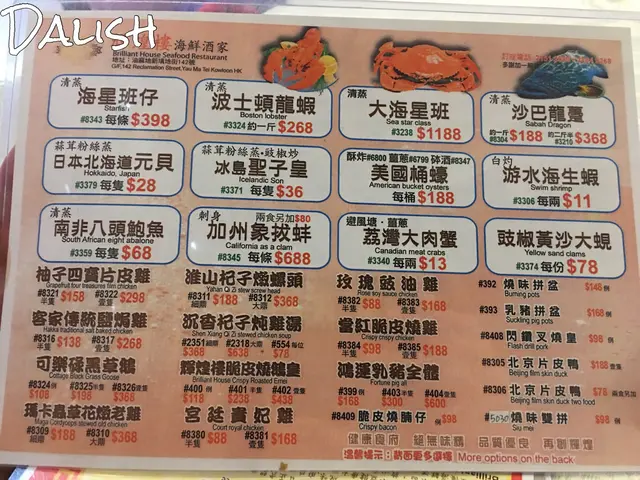 DALISH
樓 海鮮酒家
Brilliant House Seafood Restaurant
地址：油麻地新填地街142號
G/F,142 Reclamation Street,Yau Ma Tei Kowloon HK
多謝加一
清蒸
海星班仔
Starfish
#8343 每條 $398
清蒸
波士頓龍蝦
Boston lobster
#3324 約一斤 $268
清蒸
大海星班
Sea star class
3238 $1188
清蒸
沙巴龍躉
Sabah Dragon
約一斤 #8304 $188 約二斤半 #3210 $368
蒜茸粉絲蒸
日本北海道元貝
Hokkaido, Japan
#3379 每隻 $28
蒜茸粉絲蒸·豉椒炒
冰島聖子皇
Icelandic Son
#3371 每隻 $36
酥炸#6800 薑蔥#6799 砵酒#8347
美國桶蠔
American bucket oysters
每桶 $188
白灼
游水海生蝦
Swim shrimp
#3306 每兩 $11
清蒸
南非八頭鮑魚
South African eight abalone
#3359 每隻 $68
刺身 兩食另加$80
加州象拔蚌
California as a clam
#8345 每條 $688
避風塘·薑蔥
荔灣大肉蟹
Canadian meat crabs
#3340 每兩 $13
豉椒黃沙大蜆
Yellow sand clams
#3374 每份 $78
柚子四寶片皮雞
Grapefruit four treasures film chicken
#8321 半隻 $158 #8322 壹隻 $298
淮山杞子燉螺頭
Yahan Qi Zi stew screw head
#8311 細窩 $188 #8312 大窩 $368
玫瑰豉油雞
Rose soy sauce chicken
#8382 半隻 $88 #8383 壹隻 $168
#392 燒味拼盆 $148 例
Burning pots
#393 乳豬拼盆 $168 例
Suckling pig pots
客家傳統鹽焗雞
Hakka traditional salt baked chicken
#8316 半隻 $138 #8317 壹隻 $268
沉香杞子炖雞湯
Shen Xiang Qi Zi stewed chicken soup
#2351 細窩 $368 #2318 大窩 $638 #554 每位 $78
當紅脆皮燒雞
Crispy crispy chicken
#8384 半隻 $98 #8385 壹隻 $188
#8408 閃鑽叉燒皇 $98 例
Flash drill pork
#8305 北京片皮鴨 $188 壹隻
Beijing film skin duck
可樂碌黑草鵝
Cottage Black Grass Goose
#8324 例 $108 #8325 半隻 $198 #8326 壹隻 $368
輝煌樓脆皮燒鵝皇
Brilliant House Crispy Roasted Emei
#400 例 $118 #401 半隻 $238 #402 壹隻 $438
鴻運乳豬全體
Fortune pig all
#399 例 $168 #403 半隻 $300 #404 壹隻 $600
#8306 北京片皮鴨 $78 兩食另加
Beijing film skin duck two food
瑪卡蟲草花燉老雞
Maga Cordyceps stewed old chicken
#8309 細窩 $188 #8310 大窩 $368
宮廷貴妃雞
Court royal chicken
#8380 半隻 $88 #8381 壹隻 $168
#8409 脆皮燒腩仔 $98 例
Crispy bacon
#5030 燒味雙拼 $98 例
Siu mei
健康食府 絕無味精 品質優良 再創輝煌
溫馨提示：款更多選擇 More options on the back